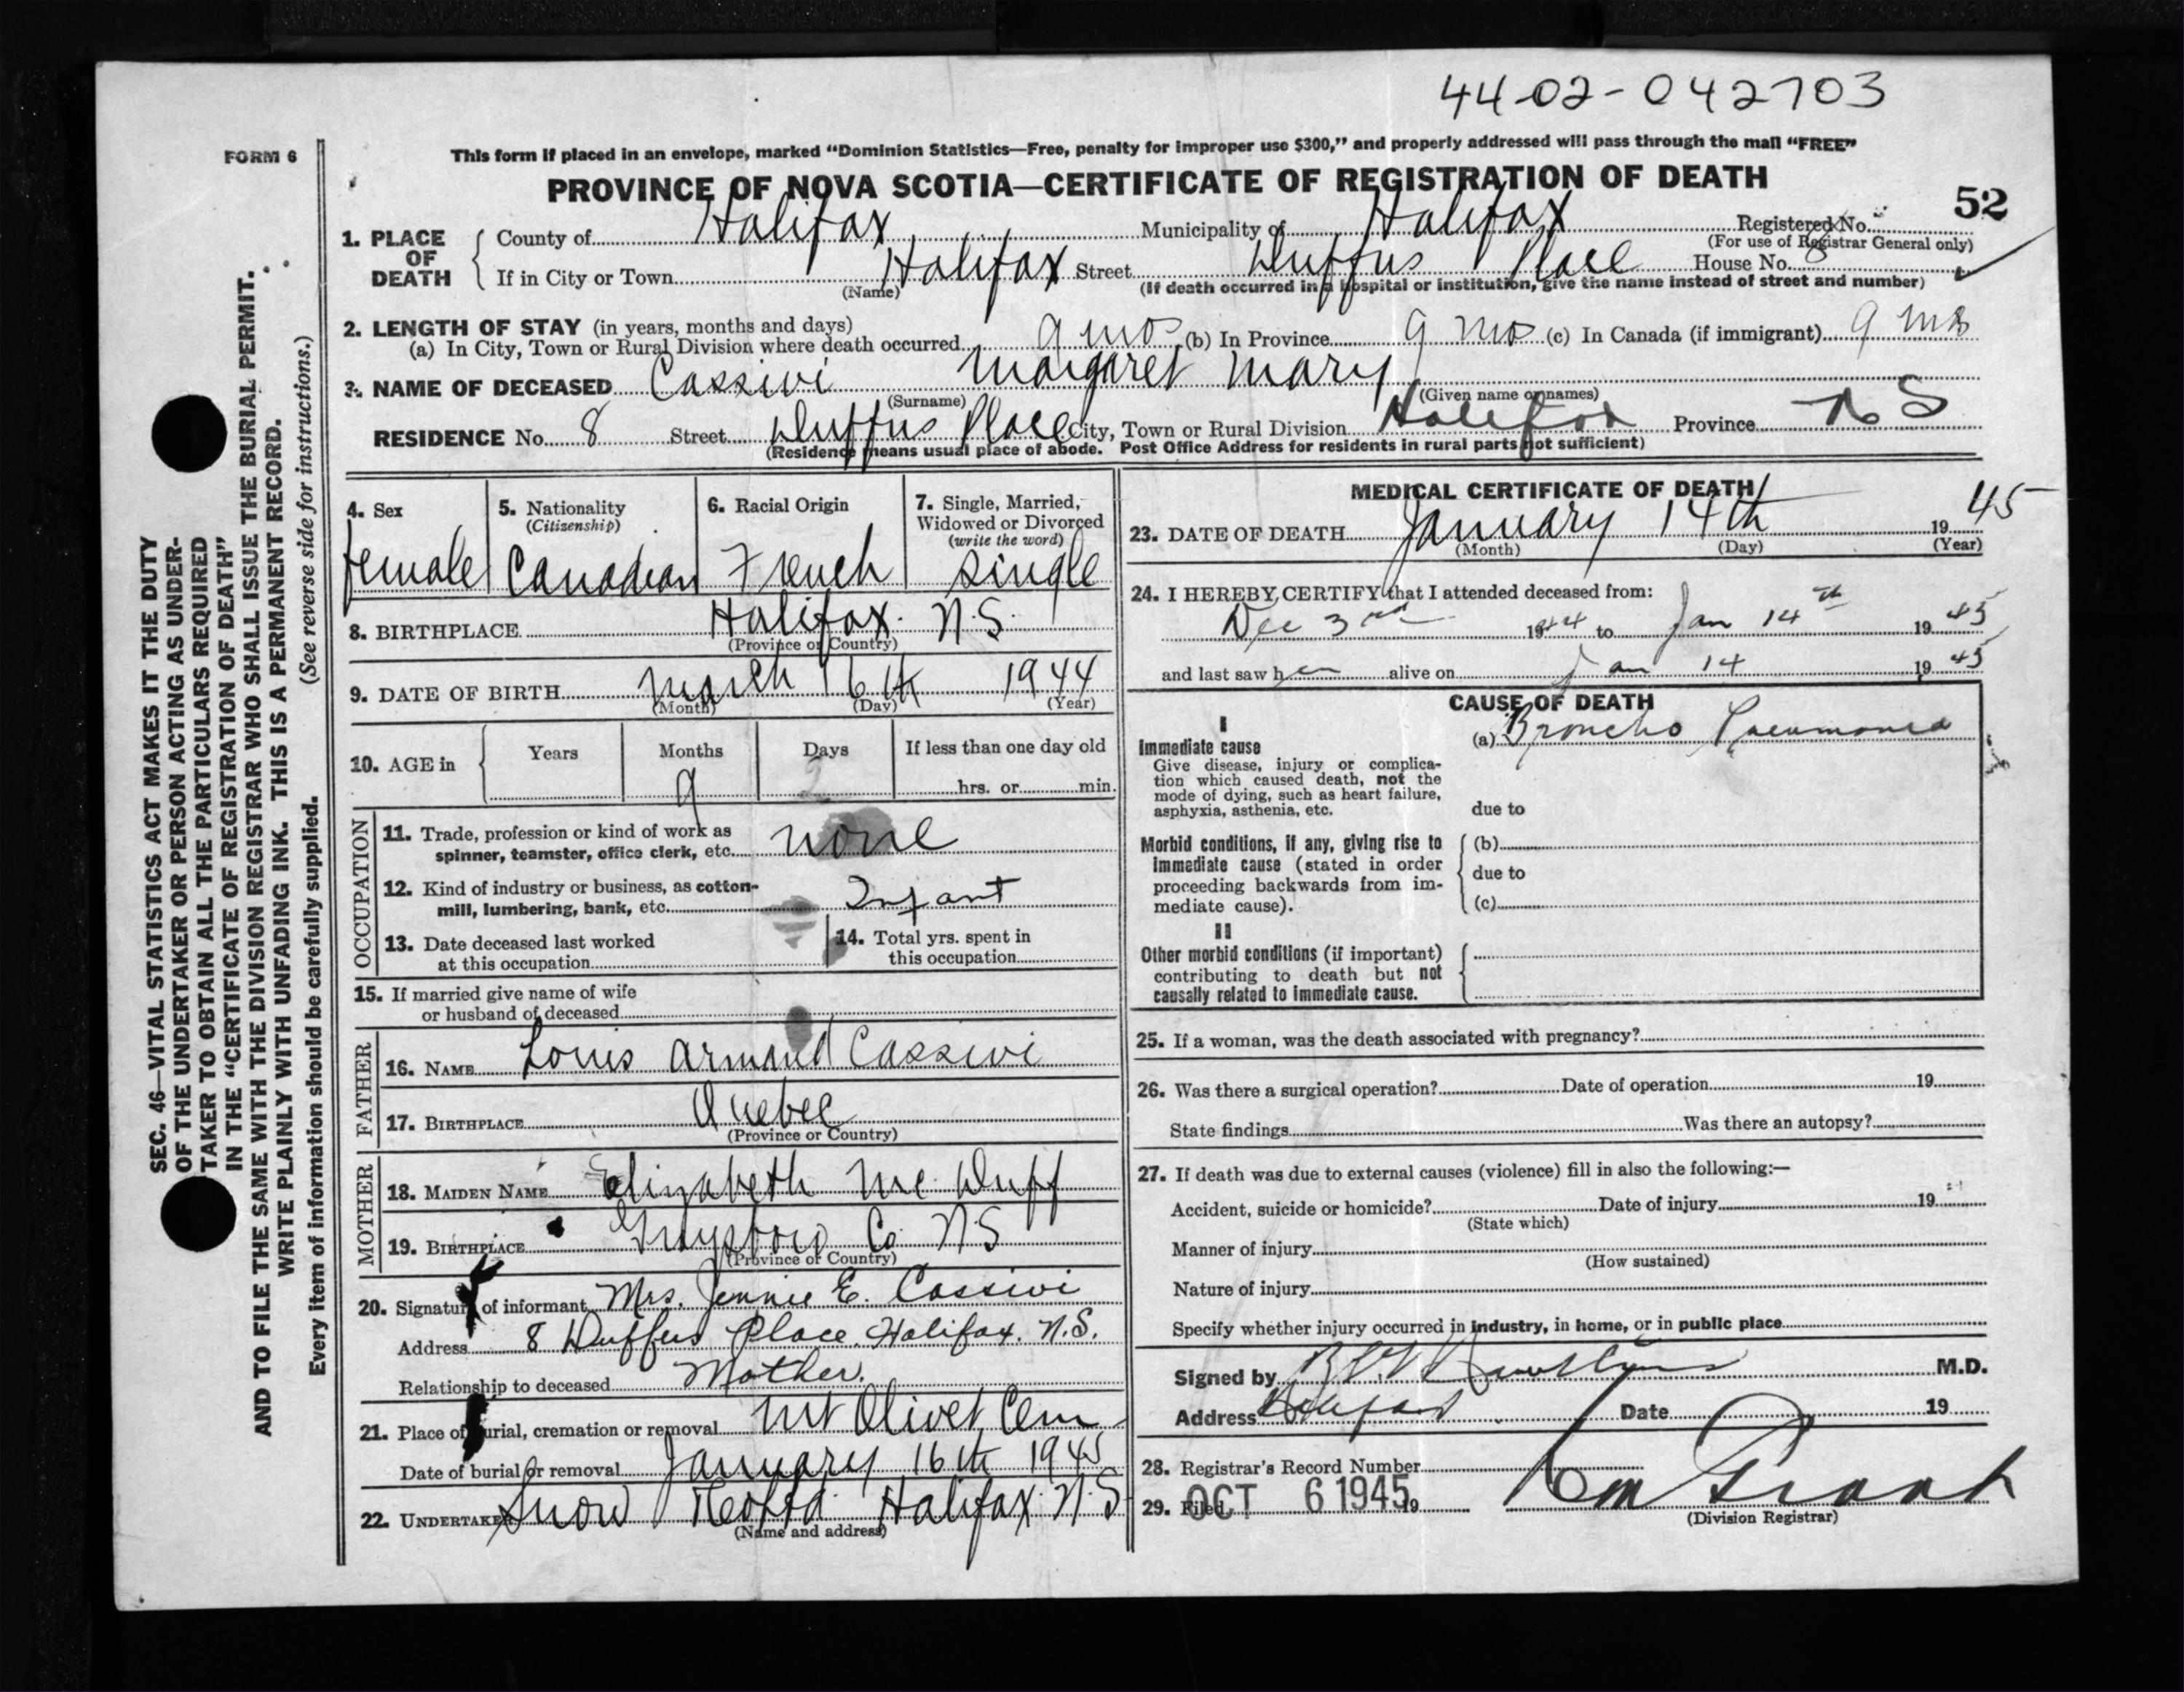 44-02-042703
FORM 6
This form if placed in an envelope, marked "Dominion Statistics—Free, penalty for improper use $300," and properly addressed will pass through the mail "FREE"
PROVINCE OF NOVA SCOTIA—CERTIFICATE OF REGISTRATION OF DEATH
52
1. PLACE OF DEATH
County of Halifax Municipality of Halifax Registered No.
(For use of Registrar General only)
If in City or Town Halifax Street Duffus Place House No. 8
(Name) (If death occurred in a hospital or institution, give the name instead of street and number)
2. LENGTH OF STAY (in years, months and days)
(a) In City, Town or Rural Division where death occurred 9 mos (b) In Province 9 mos (c) In Canada (if immigrant) 9 mos
3. NAME OF DECEASED Cassivi Margaret Mary
(Surname) (Given name or names)
RESIDENCE No. 8 Street Duffus Place City, Town or Rural Division Halifax Province N S
(Residence means usual place of abode. Post Office Address for residents in rural parts not sufficient)
4. Sex
female
5. Nationality
(Citizenship)
Canadian
6. Racial Origin
French
7. Single, Married,
Widowed or Divorced
(write the word)
single
8. BIRTHPLACE Halifax. N.S.
(Province or Country)
9. DATE OF BIRTH March 16th 1944
(Month) (Day) (Year)
10. AGE in
Years Months Days If less than one day old
9 hrs. or min.
OCCUPATION
11. Trade, profession or kind of work as
spinner, teamster, office clerk, etc. none
12. Kind of industry or business, as cotton-
mill, lumbering, bank, etc. Infant
13. Date deceased last worked
at this occupation
14. Total yrs. spent in
this occupation
15. If married give name of wife
or husband of deceased
FATHER
16. NAME Louis Armand Cassivi
17. BIRTHPLACE Quebec
(Province or Country)
MOTHER
18. MAIDEN NAME Elizabeth Mc Duff
19. BIRTHPLACE Guysboro Co N S
(Province or Country)
20. Signature of informant Mrs. Jennie E. Cassivi
Address 8 Duffus Place. Halifax. N.S.
Relationship to deceased Mother.
21. Place of burial, cremation or removal Mt Olivet Cem
Date of burial or removal January 16th 1945
22. UNDERTAKER Snow & Co Ltd. Halifax. N.S
(Name and address)
MEDICAL CERTIFICATE OF DEATH
23. DATE OF DEATH January 14th 19 45
(Month) (Day) (Year)
24. I HEREBY CERTIFY that I attended deceased from:
Dec 3rd 1944 to Jan 14th 19 45
and last saw her alive on Jan 14 19 45
CAUSE OF DEATH
I
Immediate cause
Give disease, injury or complica-
tion which caused death, not the
mode of dying, such as heart failure,
asphyxia, asthenia, etc.
(a) Broncho Pneumonia
due to
Morbid conditions, if any, giving rise to
immediate cause (stated in order
proceeding backwards from im-
mediate cause).
(b)
due to
(c)
II
Other morbid conditions (if important)
contributing to death but not
causally related to immediate cause.
25. If a woman, was the death associated with pregnancy?
26. Was there a surgical operation? Date of operation 19
State findings Was there an autopsy?
27. If death was due to external causes (violence) fill in also the following:—
Accident, suicide or homicide? Date of injury 19
(State which)
Manner of injury
(How sustained)
Nature of injury
Specify whether injury occurred in industry, in home, or in public place
Signed by M.D.
Address Halifax Date 19
28. Registrar's Record Number
29. Filed OCT 6 1945 19
(Division Registrar)
SEC. 46—VITAL STATISTICS ACT MAKES IT THE DUTY
OF THE UNDERTAKER OR PERSON ACTING AS UNDER-
TAKER TO OBTAIN ALL THE PARTICULARS REQUIRED
IN THE "CERTIFICATE OF REGISTRATION OF DEATH"
AND TO FILE THE SAME WITH THE DIVISION REGISTRAR WHO SHALL ISSUE THE BURIAL PERMIT.
WRITE PLAINLY WITH UNFADING INK. THIS IS A PERMANENT RECORD.
Every item of information should be carefully supplied. (See reverse side for instructions.)